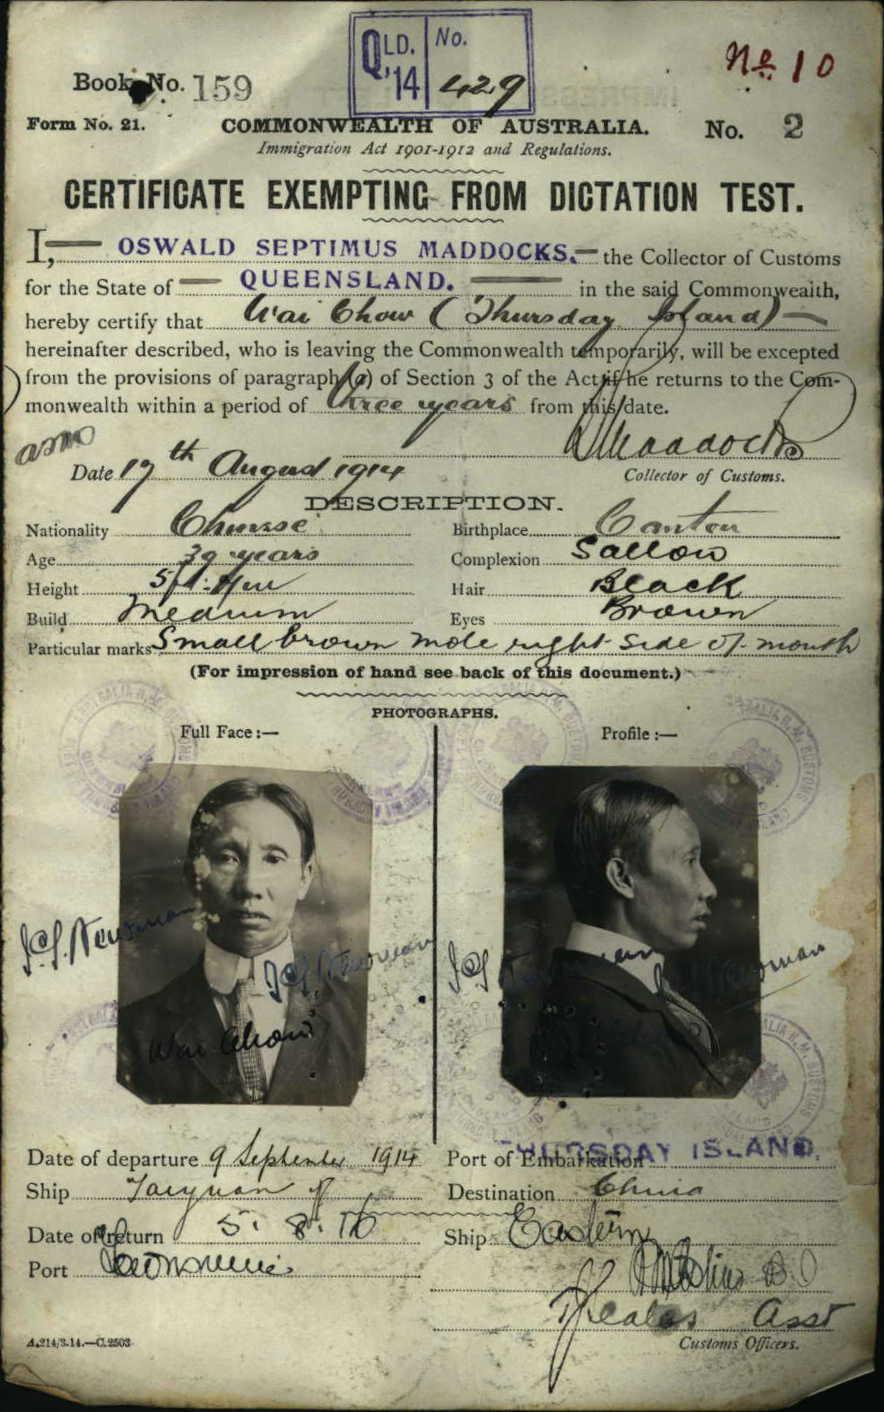 QLD. '14 No. 429
No 10
Book No. 159
Form No. 21. COMMONWEALTH OF AUSTRALIA. No. 2
Immigration Act 1901-1912 and Regulations.
CERTIFICATE EXEMPTING FROM DICTATION TEST.
I, OSWALD SEPTIMUS MADDOCKS. the Collector of Customs
for the State of QUEENSLAND. in the said Commonwealth,
hereby certify that Wai Chow (Thursday Island)
hereinafter described, who is leaving the Commonwealth temporarily, will be excepted
from the provisions of paragraph (a) of Section 3 of the Act if he returns to the Com-
monwealth within a period of three years from this date.
Maddocks
Date 17th August 1914 Collector of Customs.
DESCRIPTION.
Nationality Chinese Birthplace Canton
Age 39 years Complexion Sallow
Height 5ft. 4in Hair Black
Build Medium Eyes Brown
Particular marks Small brown mole right side of mouth
(For impression of hand see back of this document.)
PHOTOGRAPHS.
Full Face :— Profile :—
Newman
Newman
Wai Chow
Date of departure 9 September 1914 Port of Embarkation THURSDAY ISLAND.
Ship Taiyuan Destination China
Date of return 5. 8. Ship Eastern
Port
Asst
A.214/3.14.—C.2503 Customs Officers.